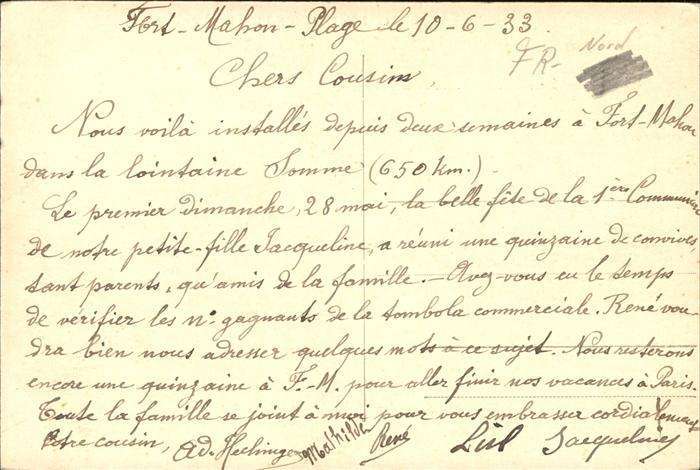 Fort-Mahon-Plage le 10-6-33
FR- Nord
Chers Cousins,
Nous voilà installés depuis deux semaines à Fort-Mahon
dans la lointaine Somme (650 km.).
Le premier dimanche, 28 mai, la belle fête de la 1ère Communion
de notre petite-fille Jacqueline, a réuni une quinzaine de convives,
tant parents, qu'amis de la famille. - Avez-vous eu le temps
de vérifier les nos gagnants de la tombola commerciale. René vou-
dra bien nous adresser quelques mots à ce sujet. Nous resterons
encore une quinzaine à F.-M. pour aller finir nos vacances à Paris.
Toute la famille se joint à moi pour vous embrasser cordialement
Votre cousin, Ad. Mathilde René Jacqueline